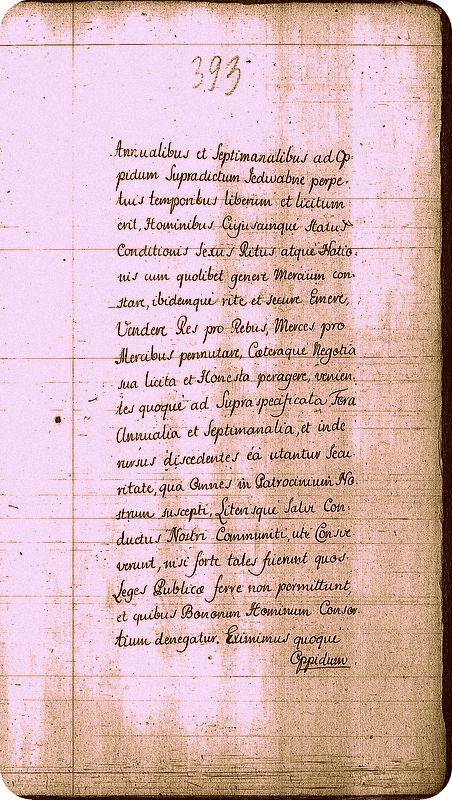 393
Annualibus et Septimanalibus ad Op-
pidum Supradictum Jedwabne perpe-
tuis temporibus liberum et licitum
erit, Hominibus Cujuscunque status
Conditionis Sexus Ritus atque Natio-
nis cum quolibet genere Mercium con-
stare, ibidemque rite et secure Emere,
Vendere Res pro Rebus, Merces pro
Mercibus permutare, Cæteraque Negotia
sua licita et Honesta peragere, venien-
tes quoque ad Supraspecificata Fora
Annualia et Septimanalia, et inde
rursus discedentes eâ utantur Secu-
ritate, quâ Omnes in Patrocinium No-
strum suscepti, Literisque Salvi Con-
ductus Nostri Communiti, uti Consve-
verunt, nisi forte tales fuerint quos
Leges Publicæ ferre non permittunt
et quibus Bonorum Hominum Consor-
tium denegatur. Eximimus quoque
Oppidum